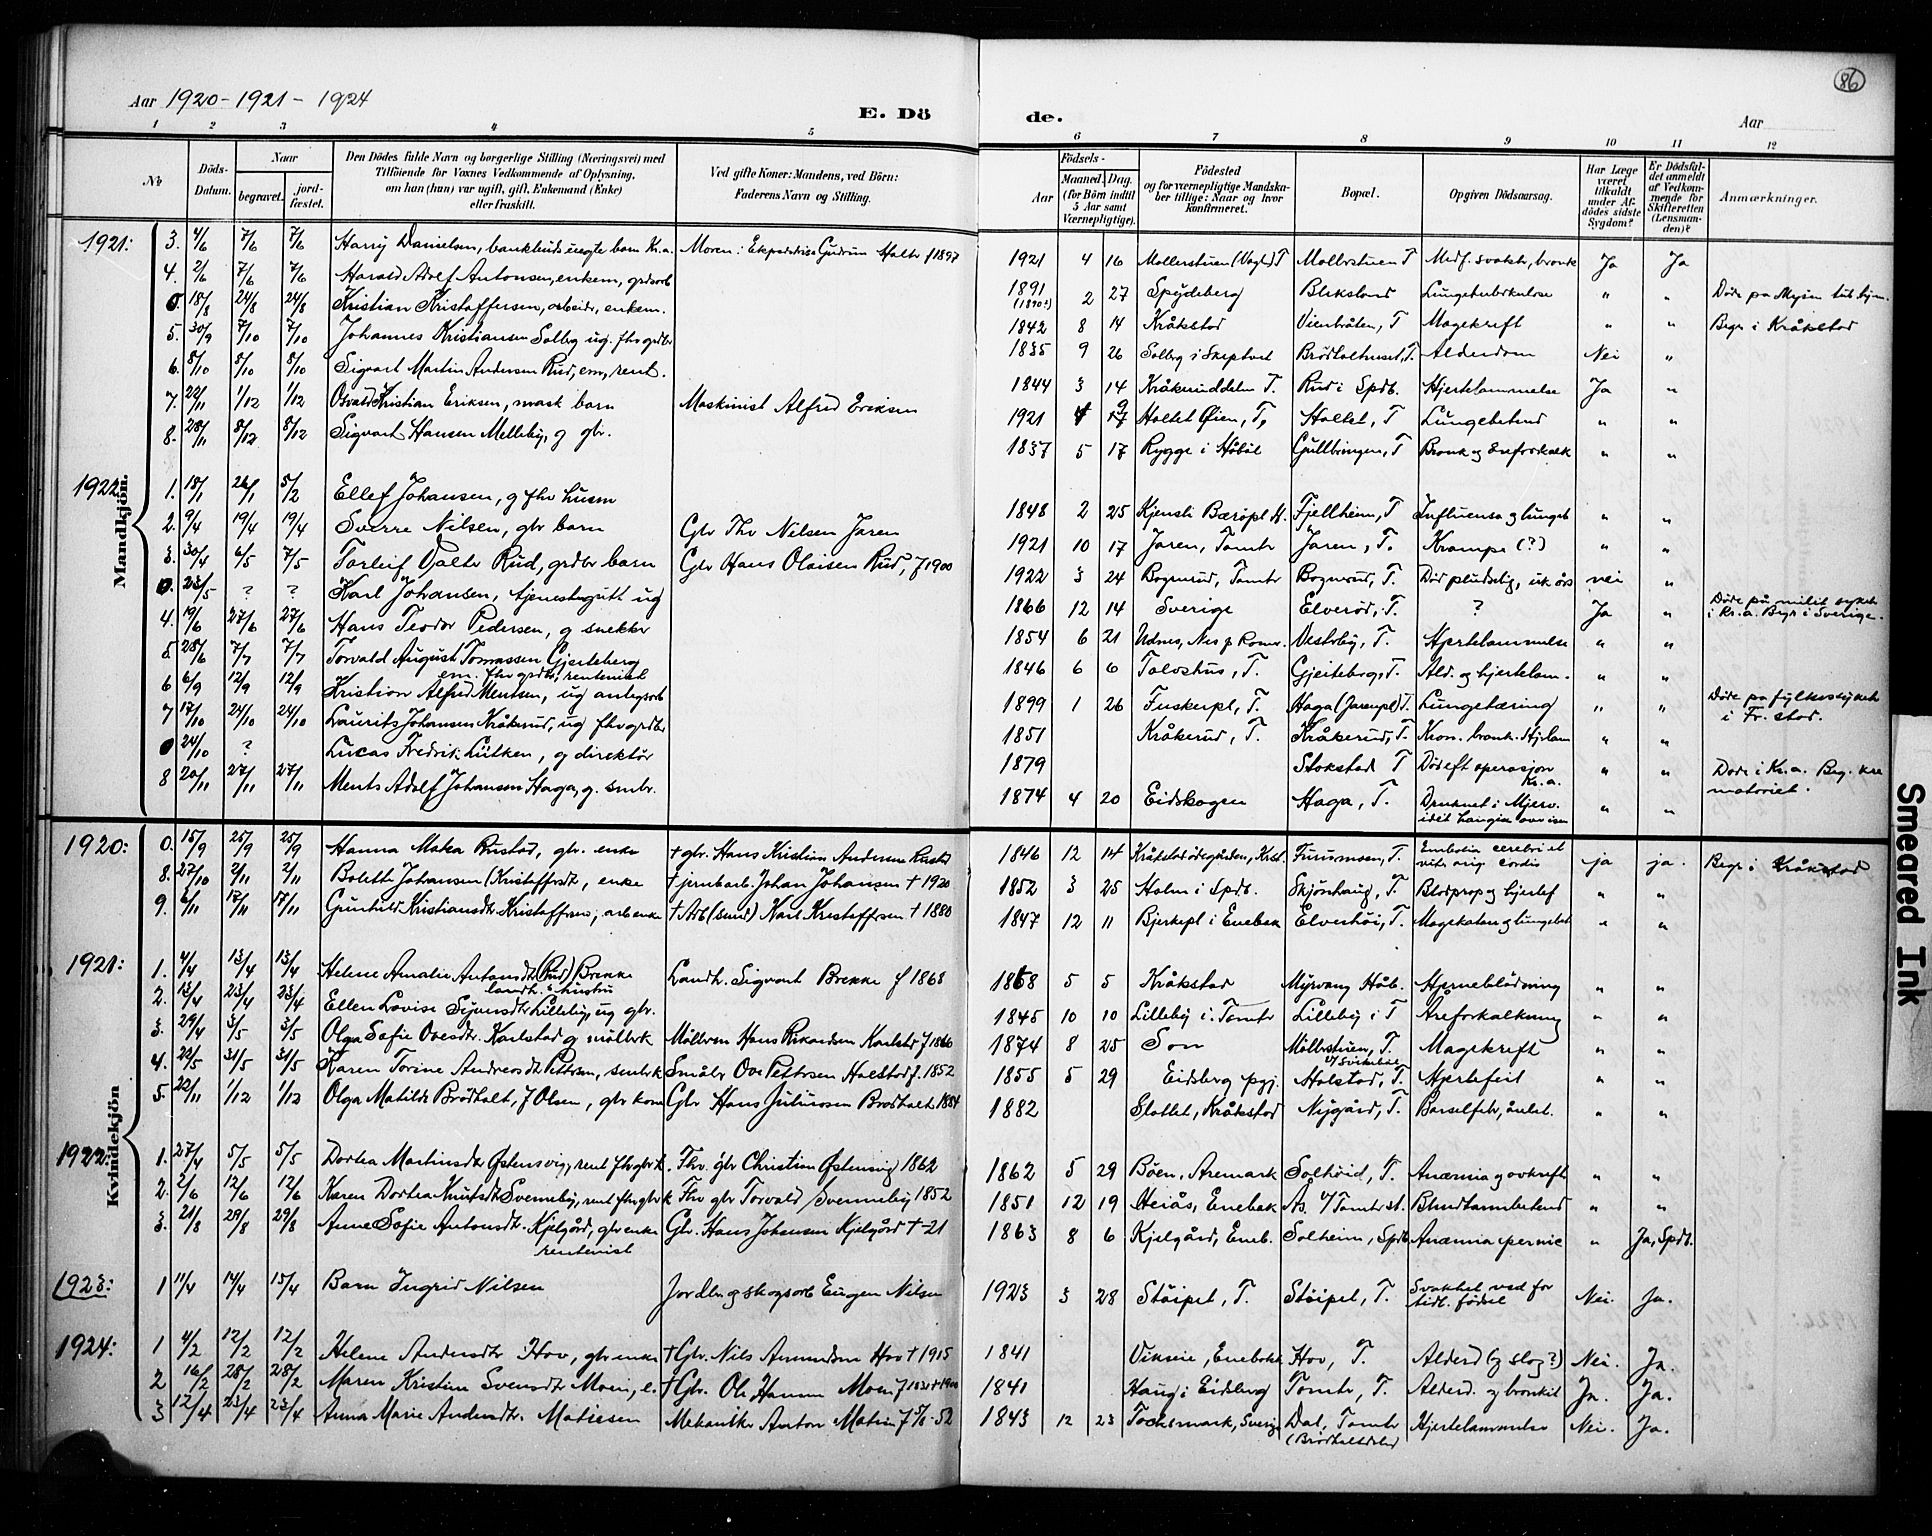 86
Aar 1920-1921-1924
E. Döde.
Aar
1 2 3 4 5 6 7 8 9 10 11 12
No
Döds-Datum.
Naar
begravet.
jordfæstet.
Den Dödes fulde Navn og borgerlige Stilling (Næringsvei) med
Tilföiende for Voxnes Vedkommende af Oplysning,
om han (hun) var ugift, gift, Enkemand (Enke)
eller fraskilt.
Ved gifte Koner: Mandens, ved Börn:
Faderens Navn og Stilling.
Födsels-
Aar
Maaned. Dag.
(for Börn indtil
5 Aar samt
Værnepligtige).
Födested
og for værnepligtige Mandska-
ber tillige: Naar og hvor
Konfirmeret.
Bopæl.
Opgiven Dödsaarsag.
Har Læge
været
tilkaldt
under Af-
dödes sidste
Sygdom?
Er Dödsfal-
det anmeldt
af Vedkom-
mende for
Skifteretten
(Lensman-
den)?
Anmærkninger.
Mandkjön.
1921: 3. 4/6 7/6 7/6 Harry Danielsen, uegte barn Kr.a. Moren: Gudrun f 1897 1921 4 16 T Ja Ja
4. 2/6 7/6 7/6 Harald Adolf Antonsen, enkem, 1891 2 27 Spydeberg Lungetuberkulose " " Døde på Mysen
0. 18/8 24/8 24/8 Kristian Kristoffersen, arbeider, enkem. 1842 8 14 Kråkstad T Magekreft " " Begr i Kråkstad
5. 30/9 7/10 7/10 Johannes Kristiansen Solberg ug. fhv grdbr 1835 9 26 Solberg i Skiptvet T. Alderdom Nei "
6. 5/10 8/10 8/10 Sigvart Martin Andersen Rud, em, rent. 1844 3 14 T. Rud i Spdb. Hjertelammelse Ja "
7. 22/11 1/12 1/12 Osvald Kristian Eriksen, mask barn Maskinist Alfred Eriksen 1921 Holtet Øien, T, Holtet, T Lungebetend " "
8. 28/11 8/12 8/12 Sigvart Hansen Melleby, g gbr. 1837 5 17 Rygge i Håbøl Gullbringen, T " "
1922 1. 18/1 26/1 5/2 Ellef Johansen, g fhv husm 1848 2 25 Fjellheim, T Influensa og lungeb " "
2. 9/4 19/4 19/4 Sverre Nilsen, gbr barn Gbr Thv Nilsen Jaren 1921 10 17 Jaren, Tomtr Jaren, T. Krampe (?) " "
3. 30/4 6/5 7/5 Torleif Valter Rud, grdbr barn Gbr Hans Olaisen Rud, f 1900 1922 3 24 Bogerud, Tomtr Bogerud, T. Død pludselig, nei "
0. 23/5 ? ? Karl Johansen, tjenestegutt ug 1866 12 14 Sverige Elverød, T. ? Ja " Døde på milit sykeh i Kr.a. Begr i Sverige.
4. 19/6 27/6 27/6 Hans Teodor Pedersen, g snekker 1854 6 21 Udnes, Nes p Romr. Vestby, T. Hjertelammelse " "
5. 28/6 7/7 7/7 Torvald August Tomassen Gjerteberg
em. fhv grdbr, rentenist 1846 6 6 T. Ald. og hjertelam. " "
6 6/9 12/9 12/9 Kristian Alfred Mentsen, ug 1899 1 26 Fuskerpl, T. Haga (Jarenpl) T. Lungetæring " " Døde på fylkessykeh i Fr.stad.
7 17/10 24/10 24/10 Laurits Johansen Kråkerud, ug fhv grdbr 1851 Kråkerud, T. Kråkerud, T. Kron. bronk. " "
0 24/10 ? Lucas Fredrik Lütken, g direktør 1879 Stokstad T Død eft operasjon Kr.a. " " Døde i Kr.a. Beg. kre
matoriet.
8 20/11 27/11 27/11 Ments Adolf Johansen Haga, g. smbr. 1874 4 20 Eidskogen Haga, T. Druknet i Mjær. " "
Kvindekjön
1920: 0. 15/9 25/9 25/9 Hanna Rustad, gbr. enke + gbr. Hans Kristian Andersen Rustad 1846 12 14 Furumoen, T. Embolia cerebri et vit. org cordis ja ja. Begr i Kråkstad
8. 27/10 2/11 2/11 Bolette Johansen (Kristoffrsdt, enke + jernbarb. Johan Johansen + 1920 1852 3 25 Holm i Spdb. Skjønhaug, T. Blodprop og hjertef " "
9. 6/11 17/11 17/11 Gunhild Kristiansdtr Kristoffersen, arb enke + Arb (smed) Karl Kristoffersen + 1880 1847 12 11 Bjerkepl i Enebak Elverhøi, T. Magekatar og lungebet " "
1921: 1. 4/4 13/4 13/4 Helene Amalie Antonsdtr (Rud) Brekke
landh. hustru Landh. Sigvart Brekke f 1868 1868 5 5 Kråkstad Myrvang Håb. Hjerneblødning " "
2. 13/4 23/4 23/4 Ellen Lovise Lilleby, ug gbr. 1845 10 10 Lilleby i Tomtr Lilleby i T Åreforkalkning " "
3. 29/4 3/5 3/5 Olga Sofie Ovesdtr. Karlstad g møllerk Hans Rikardsen Karlstad f 1860 1874 8 25 Son T. Magekreft " "
4. 22/5 31/5 31/5 Karen Torine Andreasdt Pettersen, smbrk Småbr Ove Pettersen Holstad f. 1852 1855 5 29 Eidsberg pgj. Holstad, T. Hjertefeil " "
5. 22/11 1/12 1/12 Olga Matilde Brødholt, f Olsen, gbr kone Gbr Hans Juliussen Brødholt 1884 1882 Slottet, Kråkstad Nygård, T. Barselfebr, årebet. " "
1922: 1. 27/4 5/5 5/5 Dortea Martinsdt Østensvig, rent fhv gbr k. Fhv. gbr Christian Østensvig 1862 1862 5 29 Bøen, Aremark Solhøid, T. Anæmia og avkreft " "
2. 2/6 12/6 12/6 Karen Dortea Knutsdt Svenneby, rent fhv gbr k Fhv gbr Torvald Svenneby 1852 1851 12 19 Heiås, Enebak Ås v/ Tomter st. Blindtarmbetend " "
3. 21/8 29/8 29/8 Anne Sofie Antonsdt. Kjelgård, gbr enke
rentenist Gbr. Hans Johansen Kjelgård + -21 1863 8 6 Kjelgård, Eneb. Solheim, Spdb Anæmia pernic " Ja, Spdb.
1923: 1 11/4 14/4 15/4 Barn Ingrid Nilsen Jordbr og skogsarb Eugen Nilsen 1923 3 28 Støipet, T. Støipet, T. Svakhet ved for
tidl. fødsel Nei. Ja.
1924: 1 4/2 12/2 12/2 Helene Andersdtr Hov, gbr enke + Gbr. Nils Amundsen Hov + 1915 1841 Enebakk Hov, T. Alderd (og slag?) Nei. Ja.
2 16/2 28/2 28/2 Maren Kristine Svensdt Moen, e. + Gbr. Ole Hansen Moen f 1831 + 1900 1841 Haug i Eidsberg Tomtr, T. Alderd. og bronkit Ja. Ja.
3 12/4 23/4 23/4 Anna Marie Andersdtr. Matiesen Mekaniker Anton f 5/6-52 1843 12 23 Tocksmark, Sverige Dal, Tomtr Hjertelammelse Nei. Ja.
Smeared Ink